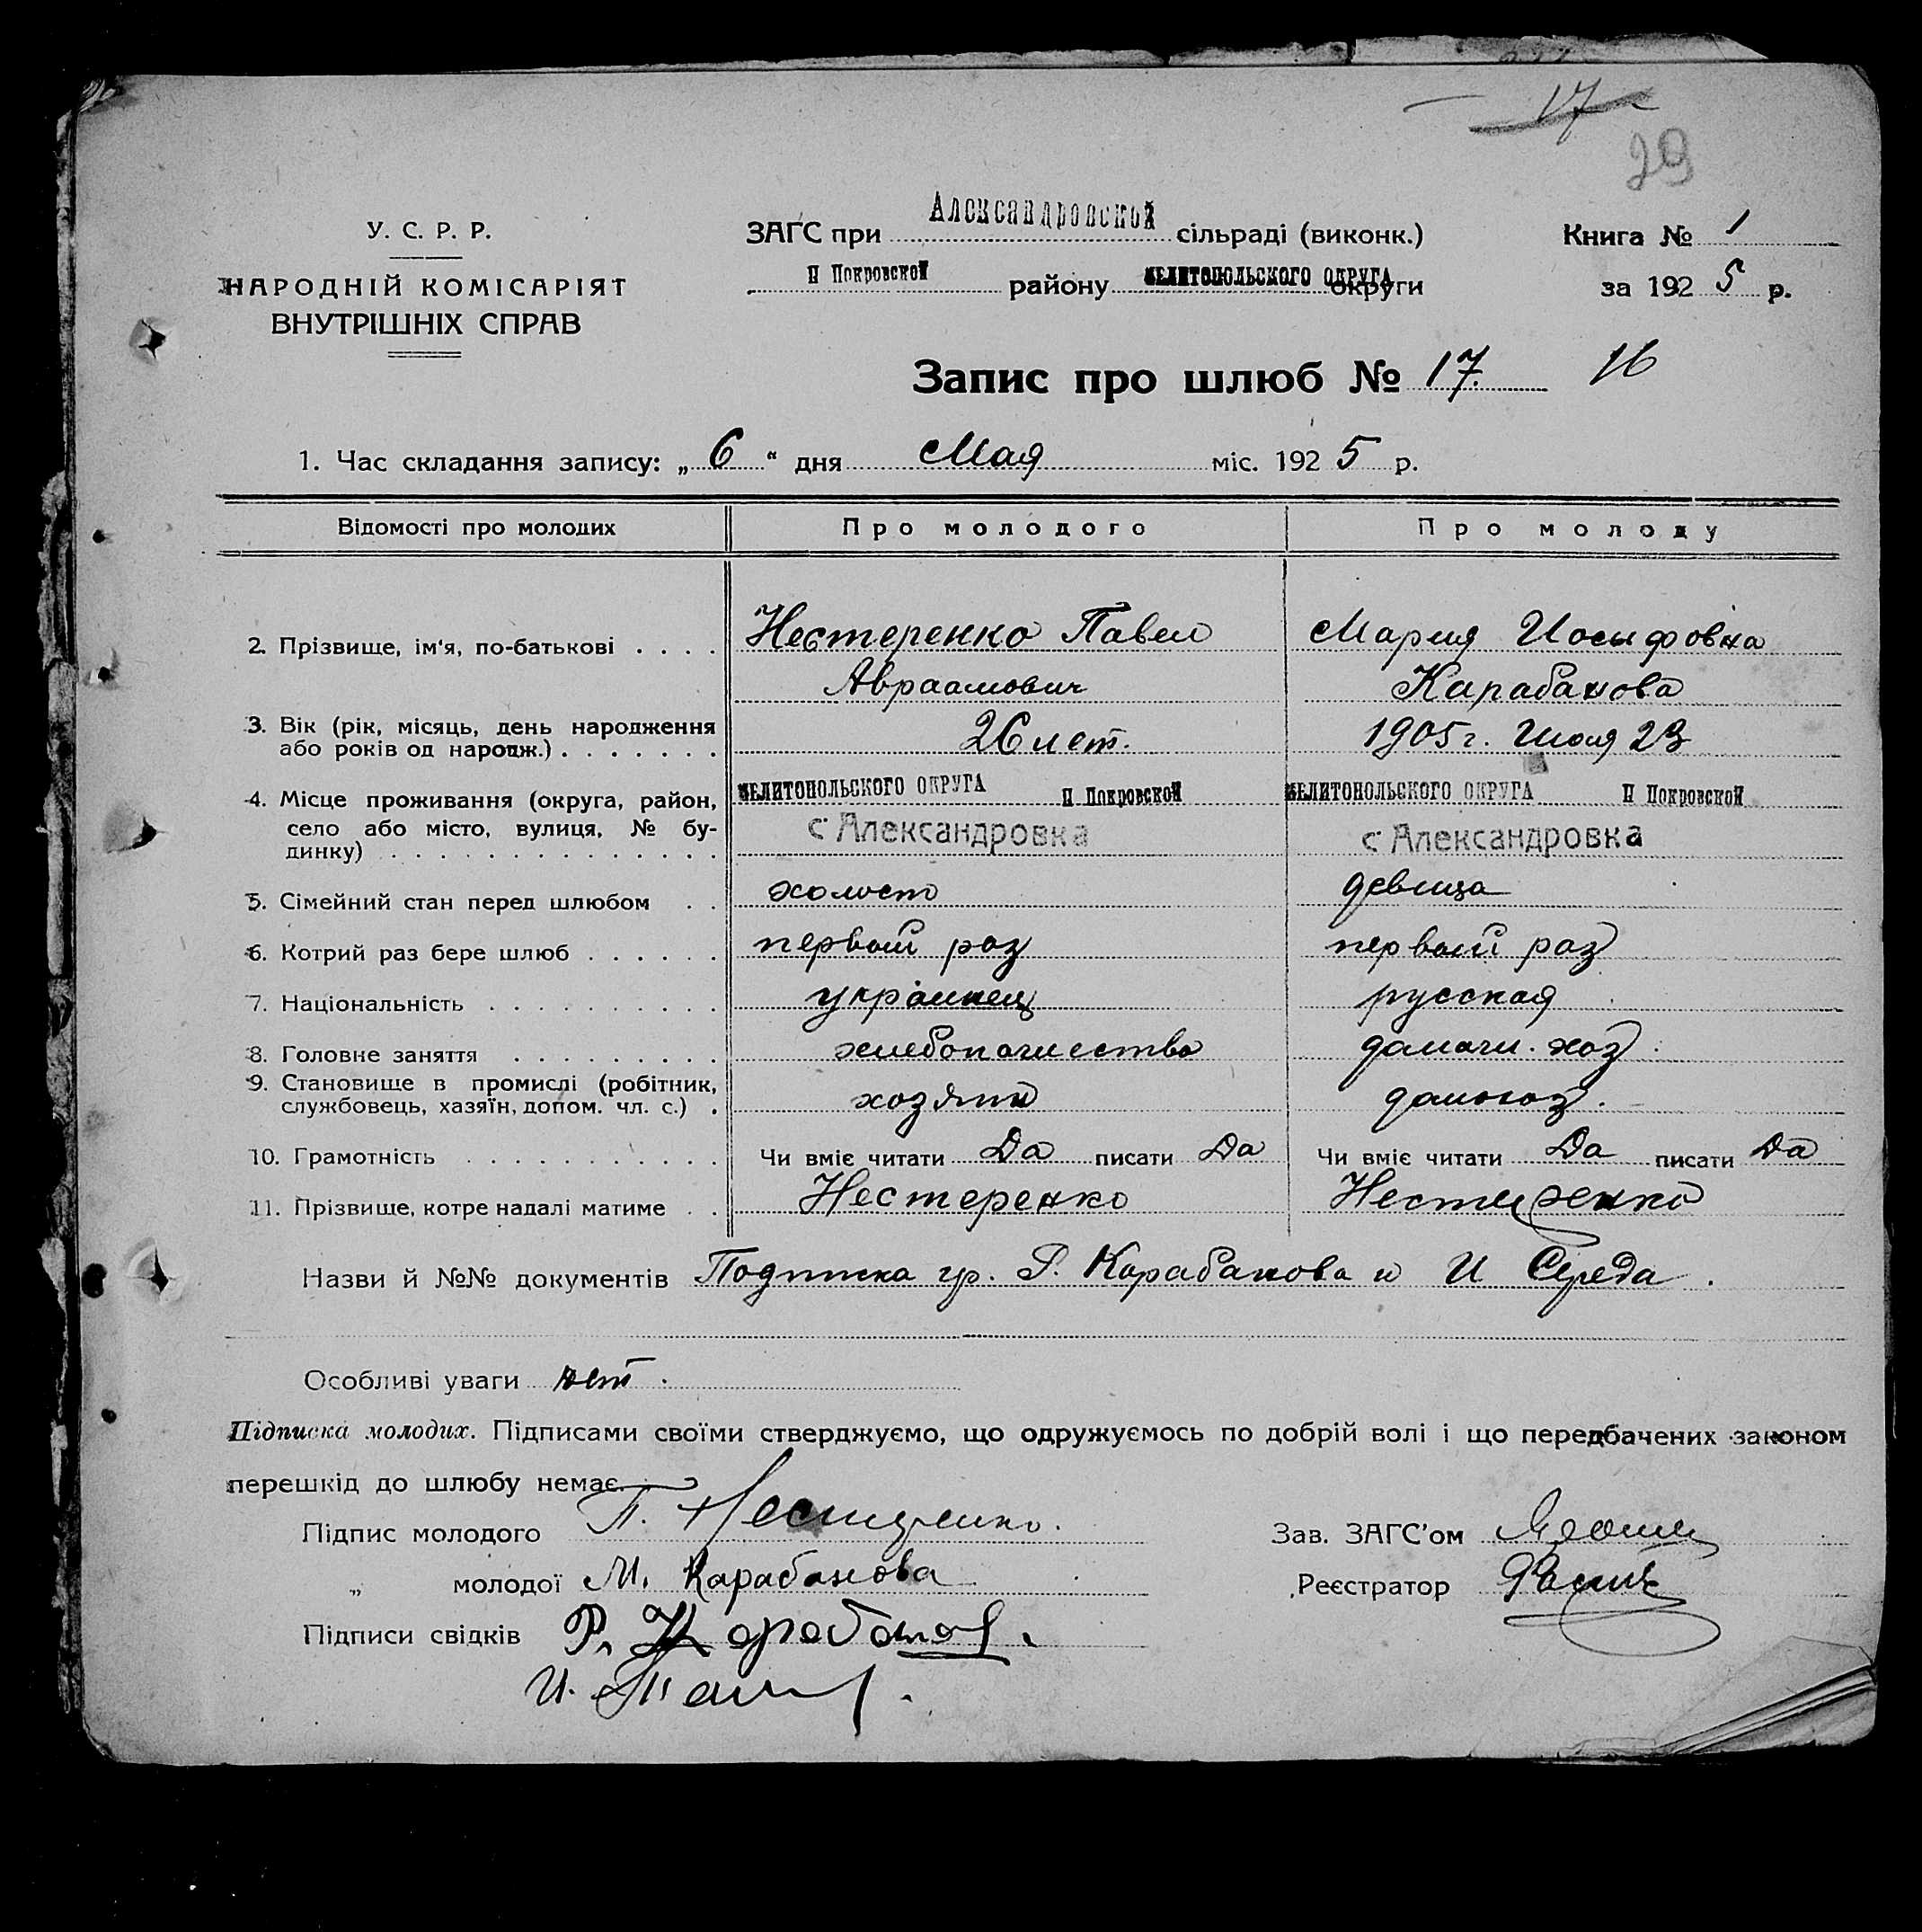 17
29
У. С. Р. Р.
НАРОДНІЙ КОМІСАРІЯТ
ВНУТРІШНІХ СПРАВ
ЗАГС при Александровской сільраді (виконк.)
П Покровской району МЕЛИТОПОЛЬСКОГО ОКРУГА округи
Книга № 1
за 1925 р.
Запис про шлюб № 17. 16
1. Час складання запису: „6“ дня Мая міс. 1925 р.
Відомості про молодих Про молодого Про молоду
2. Прізвище, ім'я, по-батькові . . . . Нестеренко Павел Мария Иосифовна
Авраамович Карабанова
3. Вік (рік, місяць, день народження
або років од народж.) . . . . . . . 26 лет. 1905 г. Июля 23
4. Місце проживання (округа, район, МЕЛИТОПОЛЬСКОГО ОКРУГА П Покровской МЕЛИТОПОЛЬСКОГО ОКРУГА П Покровской
село або місто, вулиця, № бу- с Александровка с Александровка
динку) . . . . . . . . . . . . . .
5. Сімейний стан перед шлюбом . . холост девица
6. Котрий раз бере шлюб . . . . . . первый раз первый раз
7. Національність . . . . . . . . . . украинец русская
8. Головне заняття . . . . . . . . . хлебопашество домашн. хоз.
9. Становище в промислі (робітник,
службовець, хазяїн, допом. чл. с.) . хозяин домохоз.
10. Грамотність . . . . . . . . . . . Чи вміє читати Да писати Да Чи вміє читати Да писати Да
11. Прізвище, котре надалі матиме . . Нестеренко Нестеренко
Назви й №№ документів Подписка гр. Р. Карабанова и И Середа.
Особливі уваги нет.
Підписка молодих. Підписами своїми стверджуємо, що одружуємось по добрій волі і що передбачених законом
перешкід до шлюбу немає.
Підпис молодого П. Нестеренко.
Зав. ЗАГС'ом
„ молодої М. Карабанова
Реєстратор
Підписи свідків Р. Карабанов.
И.